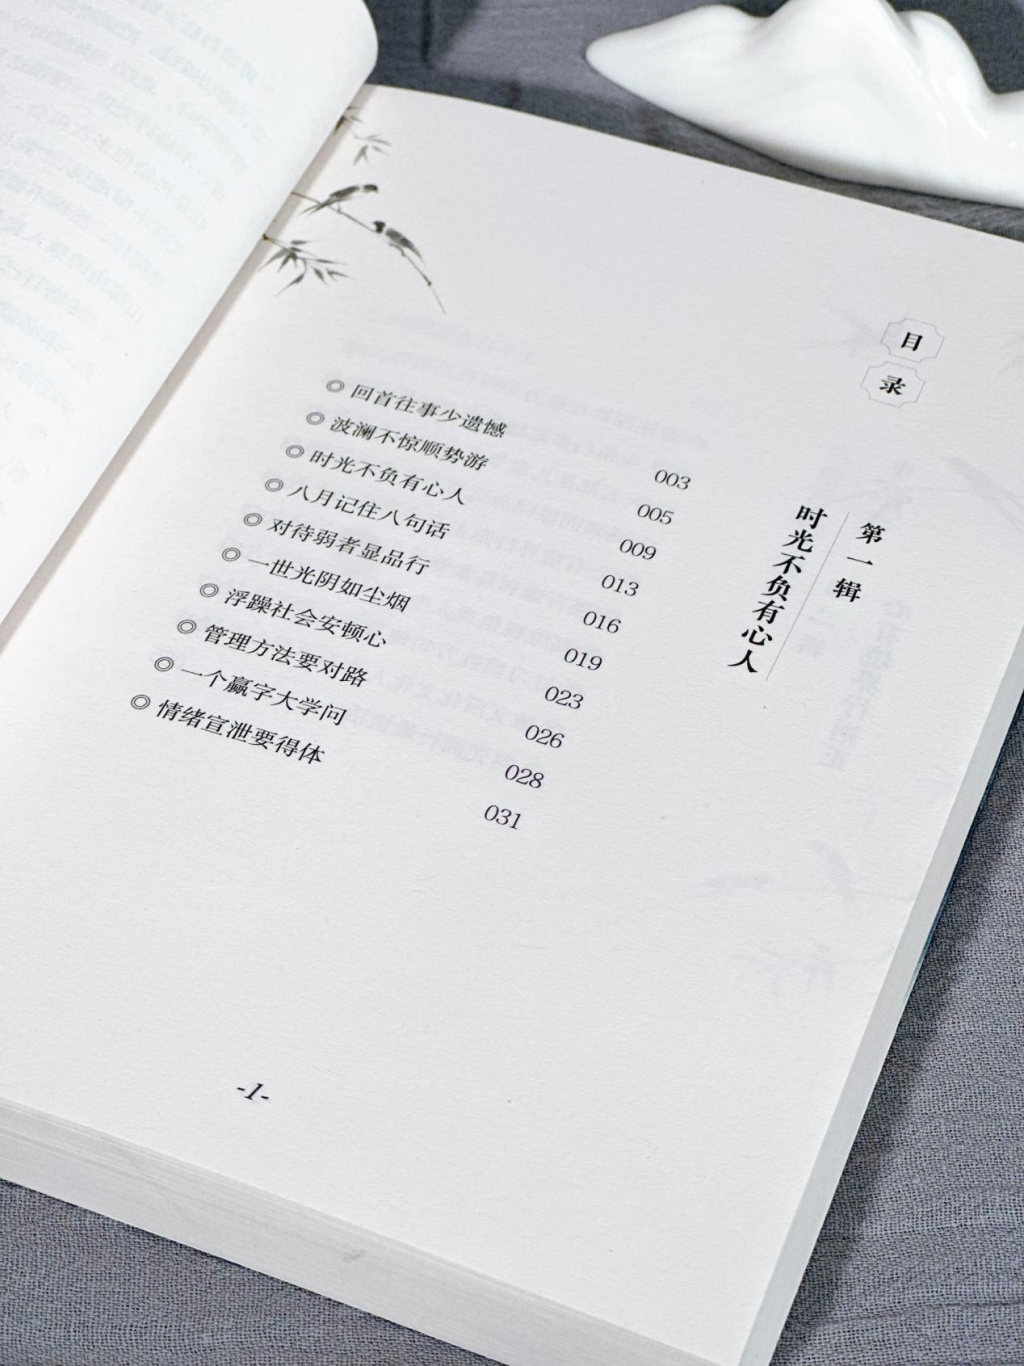 目录
第一辑
时光不负有心人
回首往事少遗憾 003
波澜不惊顺势游 005
时光不负有心人 009
八月记住八句话 013
对待弱者显品行 016
一世光阴如尘烟 019
浮躁社会安顿心 023
管理方法要对路 026
一个赢字大学问 028
情绪宣泄要得体 031
-1-